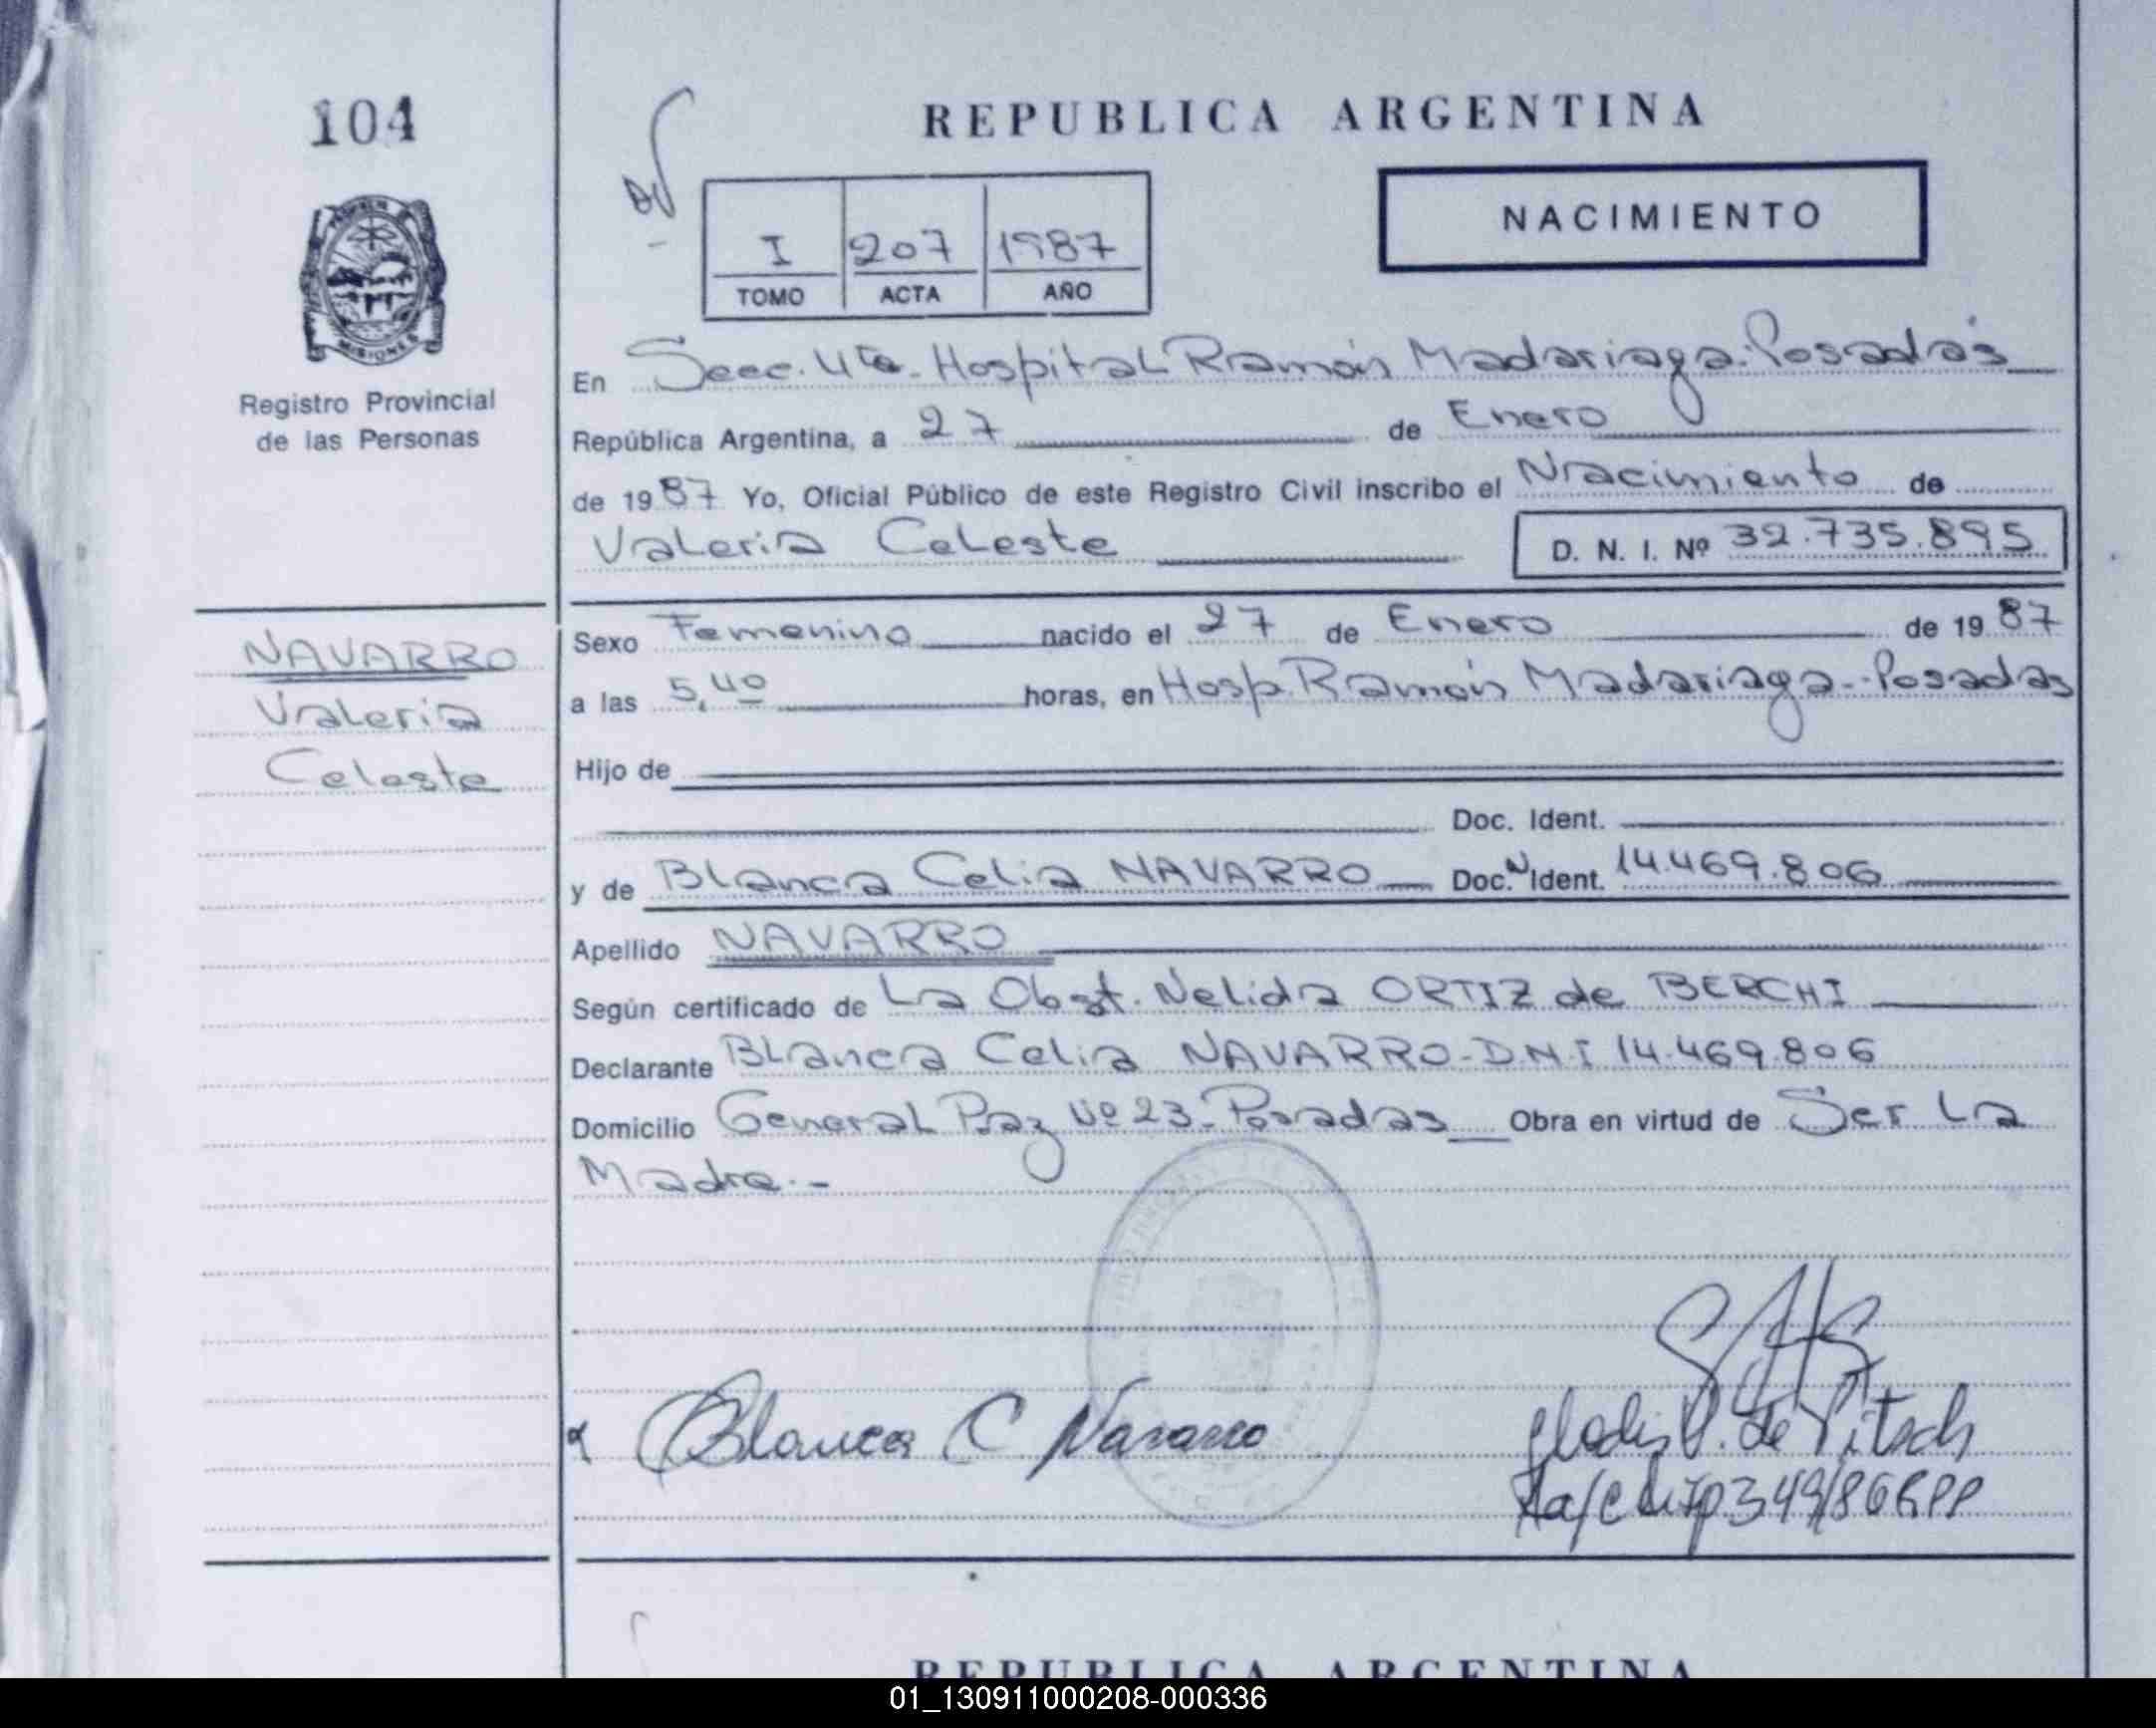 104
REPUBLICA ARGENTINA
NACIMIENTO
I 207 1987
TOMO ACTA AÑO
MISIONES
Registro Provincial
de las Personas
En Secc. 4ta. Hospital Ramón Madariaga. Posadas
República Argentina, a 27 de Enero
de 1987 Yo, Oficial Público de este Registro Civil inscribo el Nacimiento de
Valeria Celeste D. N. I. Nº 32.735.895
NAVARRO
Valeria
Celeste
Sexo Femenino nacido el 27 de Enero de 1987
a las 5,40 horas, en Hosp. Ramón Madariaga. Posadas
Hijo de
Doc. Ident.
y de Blanca Celia NAVARRO Doc. N Ident. 14.469.806
Apellido NAVARRO
Según certificado de La Obst. Nelida ORTIZ de BERCHI
Declarante Blanca Celia NAVARRO-D.N.I 14.469.806
Domicilio General Paz Nº 23. Posadas Obra en virtud de Ser La
Madre.-
Blanca C Navarro
349/86 RPP
REPUBLICA ARGENTINA
01_130911000208-000336